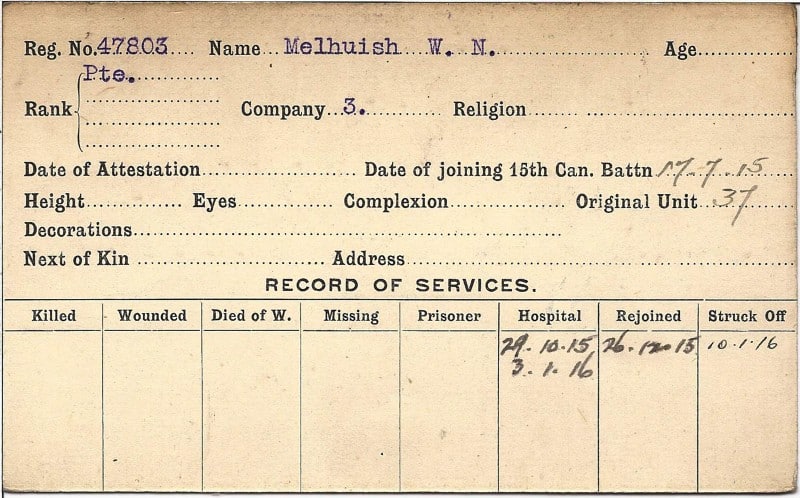 Reg. No. 47803 Name Melhuish W. N. Age
Pte.
Rank Company 3. Religion
Date of Attestation Date of joining 15th Can. Battn 17-7-15
Height Eyes Complexion Original Unit 37
Decorations
Next of Kin Address
RECORD OF SERVICES.
Killed Wounded Died of W. Missing Prisoner Hospital Rejoined Struck Off
29-10-15 26-12-15 10-1-16
3-1-16